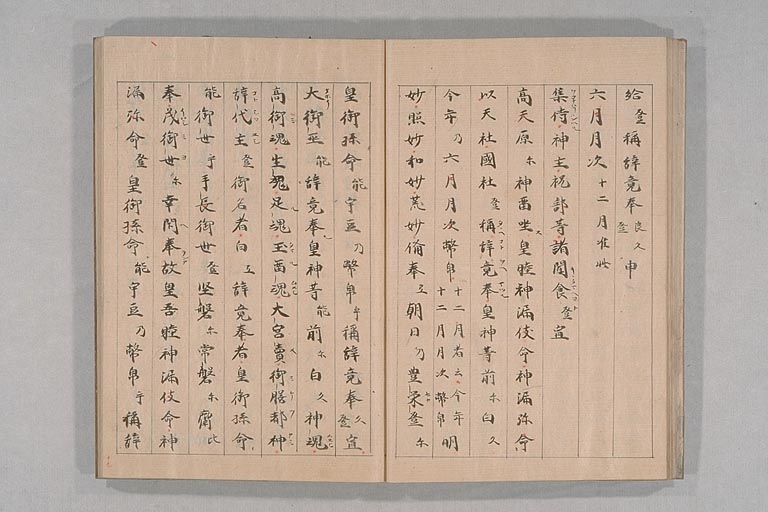 給登稱辭竟奉良久登申
六月月次十二月准此
集侍神主祝部等諸聞食登宣
高天原尓神留坐皇睦神漏伎命神漏弥命
以天社國社登稱辭竟奉皇神等前尓白久
今年乃六月月次幣帛十二月者云今年十二月月次幣帛明
妙照妙和妙荒妙備奉弖朝日乃豊榮登尓
皇御孫命能宇豆乃幣帛乎稱辭竟奉久登宣
大御巫能辭竟奉皇神等能前尓白久神魂
高御魂生魂足魂玉留魂大宮賣御膳都神
辞代主登御名者白弖辭竟奉者皇御孫命
能御世乎手長御世登堅磐尓常磐尓齋比
奉茂御世尓幸閇奉故皇吾睦神漏伎命神
漏弥命登皇御孫命能宇豆乃幣帛乎稱辞